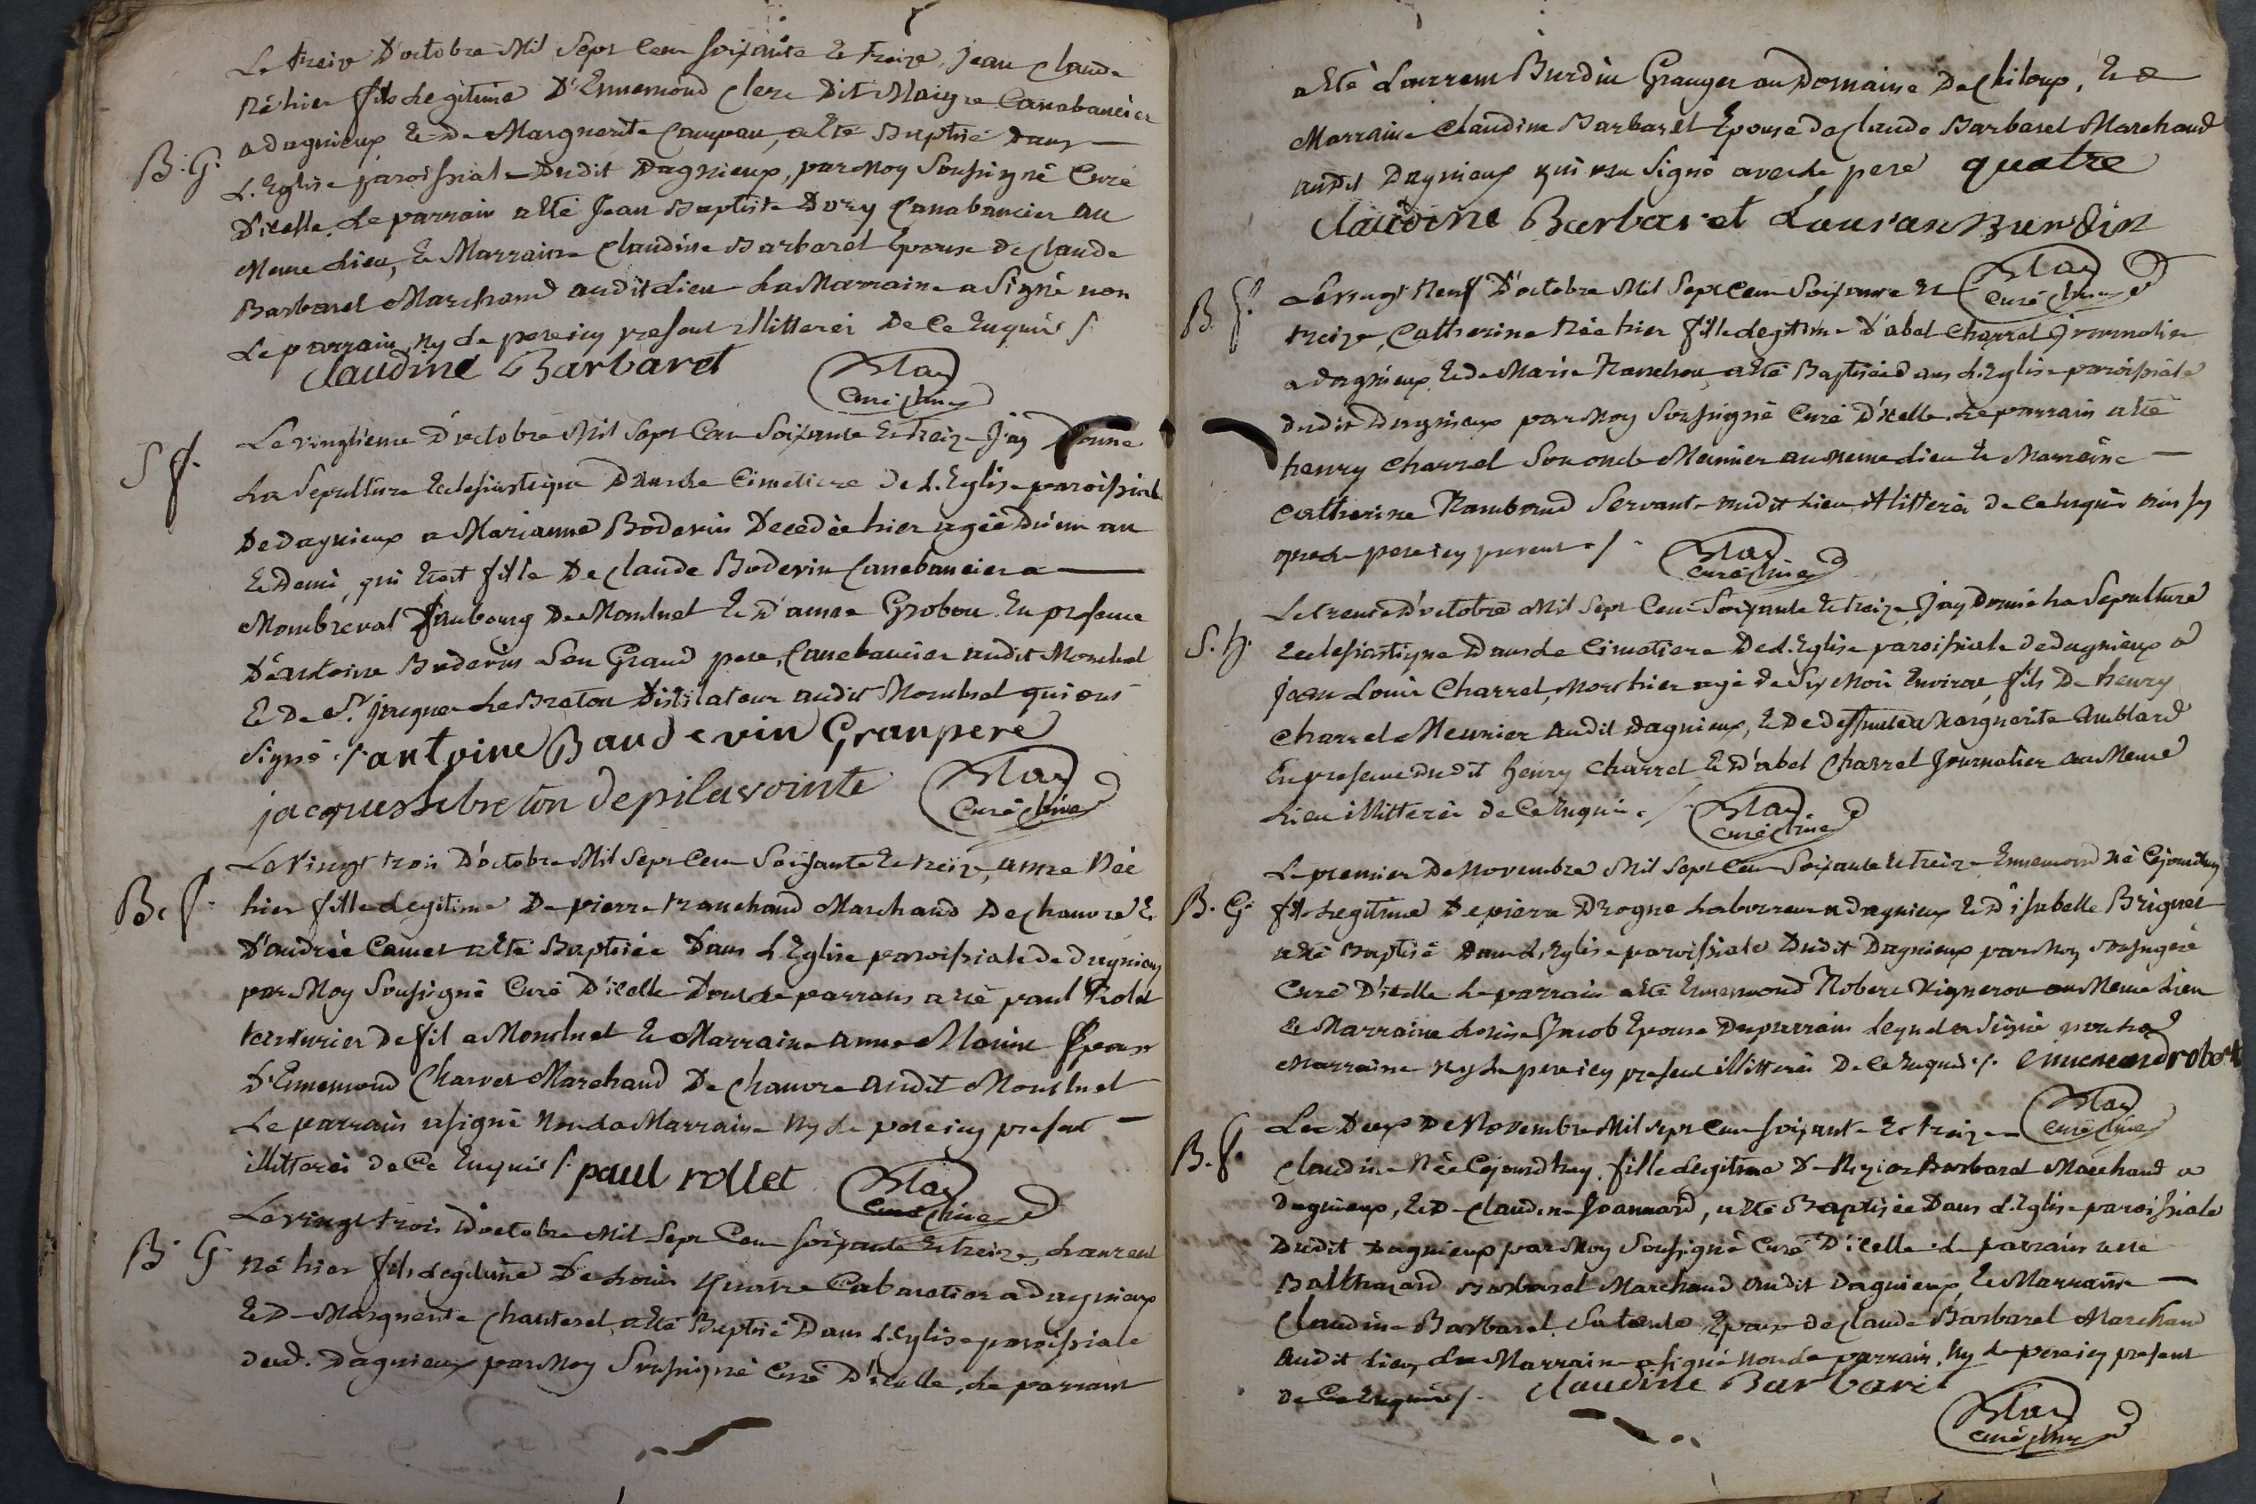 Le treize D'octobre Mil Sept Cent soixante et treize, Jean Claude
Né hier fils Legitime D'Ennemond Clerc Dit Maigre Canabancier
B. G. a dagnieux et de Marguerite Campan, a Eté Baptisé dans
L'Eglise paroissiale Dudit Dagnieux, par Moy Soussigné Curé
D'icelle, Le parrain a Eté Jean Baptiste Dory Canabancier au
Meme Lieu, Et Marraine Claudine Barbaret Epouse De Claude
Barbaret Marchand audit Lieu La Marraine a Signé non
Le parrain, ny Le pere icy present illitterés De Ce Enquis /.
Claudine Barbaret
curé
S f. Le vingtieme D'octobre Mil Sept Cent Soixante Et treize J'ay Donné
La Sepulture Ecclesiastique Dans Le Cimetiere De L'Eglise paroissiale
De dagnieux a Marianne Boderin Decedée hier agée D'un an
Et Demi, qui Etoit fille De Claude Boderin Canabancier a
Mombreval faubourg De Montluel Et D'anne Grobon En presence
D'antoine Boderin Son Grand pere, Canebancier audit Montluel
Et De Sr. Jacque Le Breton Distilateur audit Montluel qui ont
Signé /. antoine Baudevin Granpere
jacques lebreton
curé
B. f. Le Vingt trois D'octobre Mil Sept Cent Soixante Et treize, anne Née
hier fille Legitime De pierre tranchand Marchand De chanvre Et
D'andrée Camet a Eté Baptisée Dans L'Eglise paroissiale de Dagnieux
par Moy Soussigné Curé D'icelle Dont Le parrain a eté paul Rolet
teinturier de fil a Montluel Et Marraine anne Moine Epouse
D'Ennemond Charvet Marchand De Chanvre audit Montluel
Le parrain a signé Non La Marraine Ny Le pere icy present
illitterés de Ce Enquis /. paul rollet
curé
Le vingt trois D'octobre Mil Sept Cent soixante Et treize, Laurent
B. G. né hier fils Legitime De Louis quatre Cabaretier a Dagnieux
Et De Marguerite Chanterel, a Eté Baptisé Dans L'Eglise paroissiale
dud. Dagnieux par Moy Soussigné Curé D'icelle, Le parrain
a Eté Laurent Burdin Granger au Domaine De Chiloup, Et
Marraine Claudine Barbaret Epouse de Claude Barbaret Marchand
audit Dagnieux qui ont Signé avec Le pere quatre
Claudine Barbaret Lauran Burdin
curé
B. f. Le vingt Neuf D'octobre Mil Sept Cent Soixante Et
treize, Catherine Née hier fille Legitime D'abel Charrel Journalier
a dagnieux Et De Marie a Eté Baptisée dans L'Eglise paroissiale
dudit Dagnieux par Moy Soussigné Curé D'icelle Le parrain a Eté
henry Charrel Son oncle Meunier au Meme Lieu Et Marraine
Catherine Rambaud Servante audit Lieu illitterés de Ce Enquis ainsy
que Le pere icy present /.
curé
Le trente D'octobre Mil Sept Cent Soixante Et treize, J'ay Donné La Sepulture
Ecclesiastique Dans Le Cimetiere De L'Eglise paroissiale de Dagnieux a
Jean Louis Charrel, Mort hier agé de Six Mois Environ, fils De henry
Charrel Meunier audit Dagnieux, Et De deffunte Marguerite Amblard
En presence dudit henry Charrel Et D'abel Charrel Journalier au Meme
Lieu illitterés de Ce Enquis /.
curé
Le premier De Novembre Mil Sept Cent Soixante Et treize Ennemond né Cejourdhuy
B. G. fils Legitime De pierre Drogne Laboureur a Dagnieux Et D'isabelle Brignet
a Eté Baptisé Dans L'Eglise paroissiale Dudit Dagnieux par Moy Soussigné
Curé D'icelle Le parrain a Eté Ennemond Robert Vigneron au Meme Lieu
Et Marraine Louise Jacob Epouse Du parrain Lequel a Signé non La
Marraine Ny Le pere icy present illitterés De Ce Enquis /. ennemond robert
curé
Le Deux De Novembre Mil sept Cent soixante Et treize
B. f. Claudine Née Cejourdhuy, fille Legitime De Barbaret Marchand a
Dagnieux, Et De Claudine Joannard, a Eté Baptisée Dans L'Eglise paroissiale
Dudit Dagnieux par Moy Soussigné Curé D'icelle Le parrain a Eté
Balthazard Barbaret Marchand audit Dagnieux, Et Marraine
Claudine Barbaret Sa tante Epouse de Claude Barbaret Marchand
audit Lieu La Marraine a signé non Le parrain Ny Le pere icy present
de Ce Enquis /. Claudine Barbaret
curé